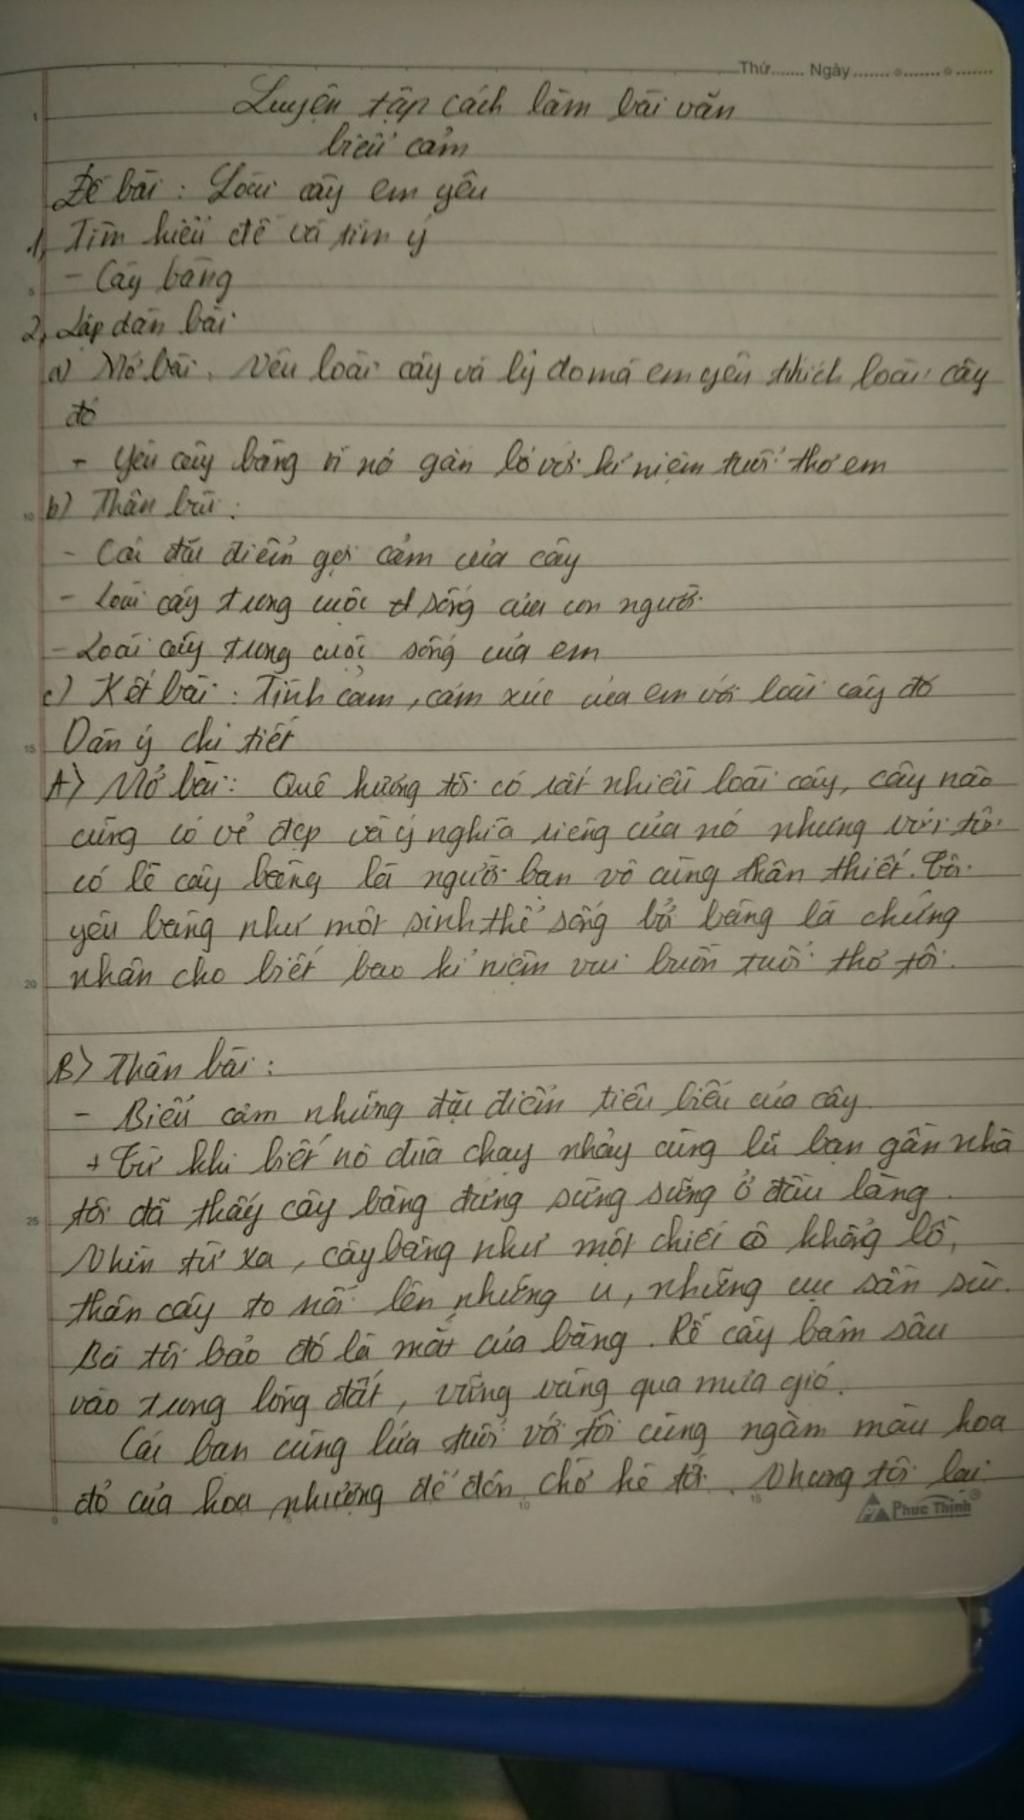 Thứ....... Ngày.......
Luyện tập cách làm bài văn
biểu cảm
Đề bài : Loài cây em yêu
1, Tìm hiểu đề và tìm ý
- Cây bàng
2, Lập dàn bài
a) Mở bài. Nêu loài cây và lý do mà em yêu thích loài cây
đó
- Yêu cây bàng vì nó gắn bó với kỉ niệm tuổi thơ em
b) Thân bài :
- Các đặc điểm gợi cảm của cây
- Loài cây trong cuộc sống của con người
- Loài cây trong cuộc sống của em
c) Kết bài : Tình cảm, cảm xúc của em với loài cây đó
Dàn ý chi tiết
A) Mở bài : Quê hương tôi có rất nhiều loài cây, cây nào
cũng có vẻ đẹp và ý nghĩa riêng của nó nhưng với tôi
có lẽ cây bàng là người bạn vô cùng thân thiết. Tôi
yêu bàng như một sinh thể sống bởi bàng là chứng
nhân cho biết bao kỉ niệm vui buồn tuổi thơ tôi.
B) Thân bài :
- Biểu cảm những đặc điểm tiêu biểu của cây
+ Từ khi biết nô đùa chạy nhảy cùng lũ bạn gần nhà
tôi đã thấy cây bàng đứng sừng sững ở đầu làng.
Nhìn từ xa, cây bàng như một chiếc ô khổng lồ,
thân cây to nổi lên những u, những cục sần sùi.
Bà tôi bảo đó là mắt của bàng. Rễ cây bám sâu
vào trong lòng đất, vững vàng qua mưa gió.
Các bạn cùng lứa tuổi với tôi cùng ngắm màu hoa
đỏ của hoa phượng để đón chờ hè tới. Nhưng tôi lại
Phuc Thinh